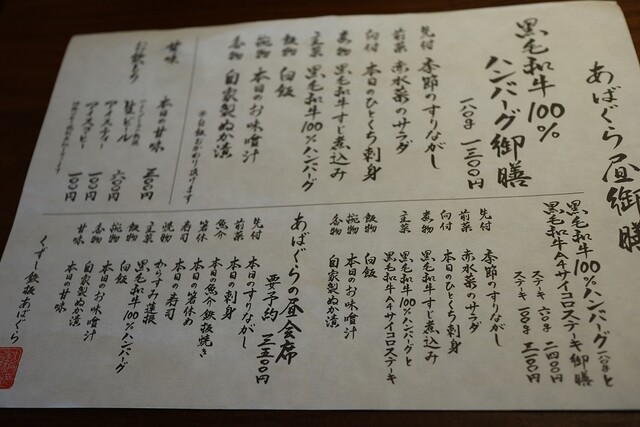 あばぐら昼御膳
黒毛和牛100%
ハンバーグ御膳
一八〇g 一三〇〇円
先付 季節のすりながし
前菜 赤水菜のサラダ
向付 本日のひとくち刺身
煮物 黒毛和牛すじ煮込み
主菜 黒毛和牛100%ハンバーグ
飯物 白飯
椀物 本日のお味噌汁
香物 自家製ぬか漬
※白飯おかわり頂けます
甘味 本日の甘味 三〇〇円
お飲もの
生ビール 六〇〇円
アイスティー 一〇〇円
アイスコーヒー 一〇〇円
黒毛和牛100%ハンバーグ一八〇gと
黒毛和牛A4サイコロステーキ御膳
ステーキ 六〇g 二四〇〇円
ステーキ 一〇〇g 三一〇〇円
先付 季節のすりながし
前菜 赤水菜のサラダ
向付 本日のひとくち刺身
煮物 黒毛和牛すじ煮込み
主菜 黒毛和牛100%ハンバーグと
黒毛和牛A4サイコロステーキ
飯物 白飯
椀物 本日のお味噌汁
香物 自家製ぬか漬
あばぐらの昼会席
要予約 三五〇〇円
先付 本日のすりながし
前菜 本日の刺身
魚介 本日の魚介鉄板焼き
箸休 本日の箸休め
寿司 本日の寿司
焼物 からすみ蓮根
主菜 黒毛和牛100%ハンバーグ
飯物 白飯
椀物 本日のお味噌汁
香物 自家製ぬか漬
甘味 本日の甘味
くずし鉄板あばぐら